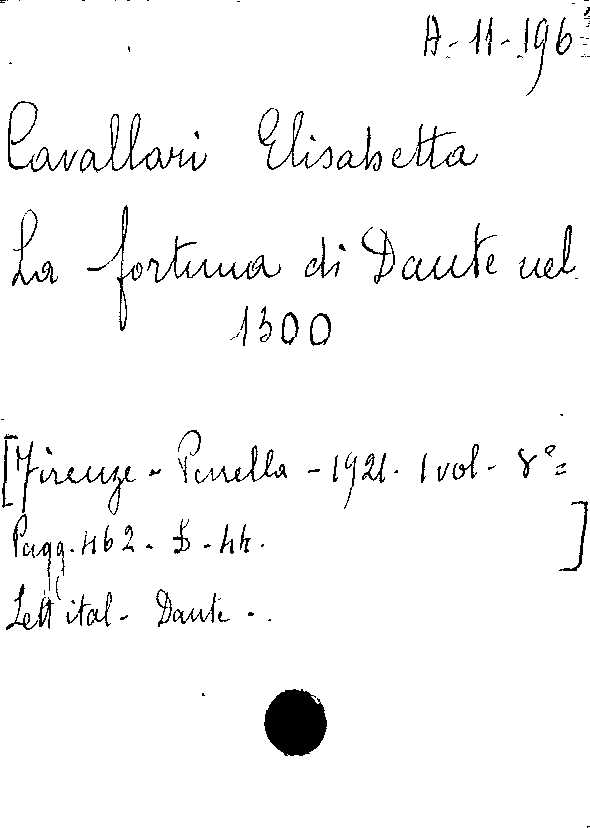 A-11-196
Cavallari Elisabetta
La fortuna di Dante nel
1300
[Firenze - Perrella - 1921. 1 vol - 8°=
Pagg. 462 - - 44. ]
Lett ital - Dante - .